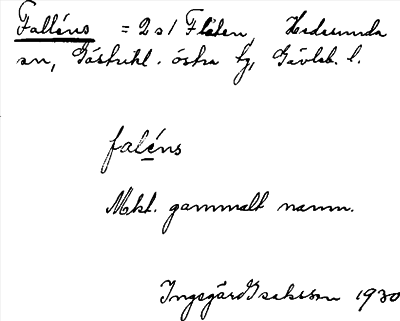 Falléns = 2 a/ Flåten, Hedesunda
sn, Gästrikl. östra tg, Gävleb. l.
faléns
Mkt. gammalt namn.
Ingegärd Isaksson 1930